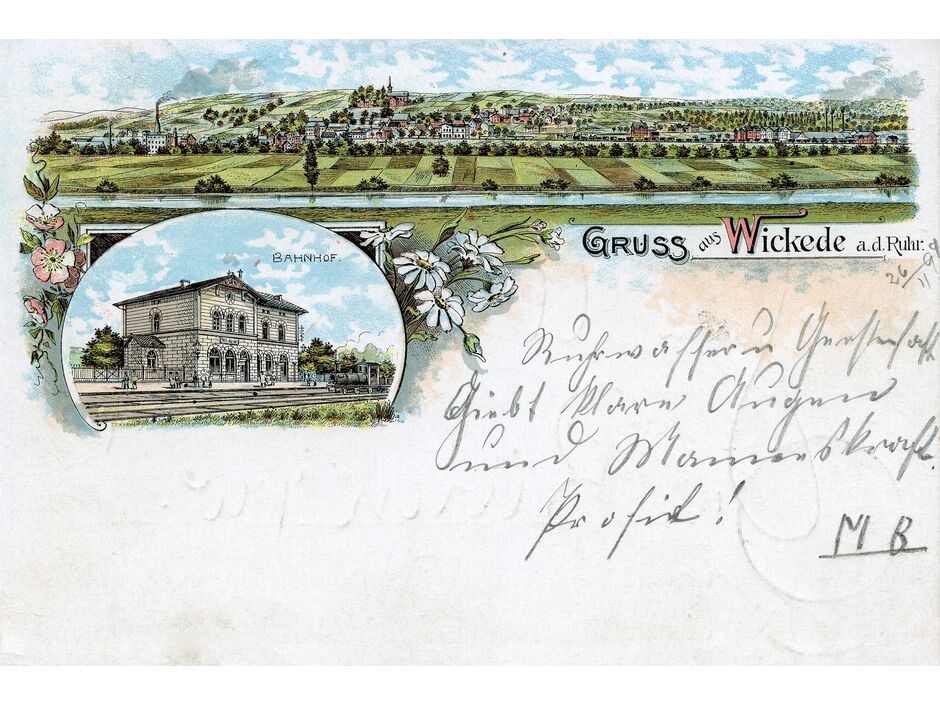 BAHNHOF.
GRUSS aus Wickede a.d.Ruhr.
26/11 99
Ruhrwasser u Gerstensaft
Giebt klare Augen
und Manneskraft.
Prosit!
M B